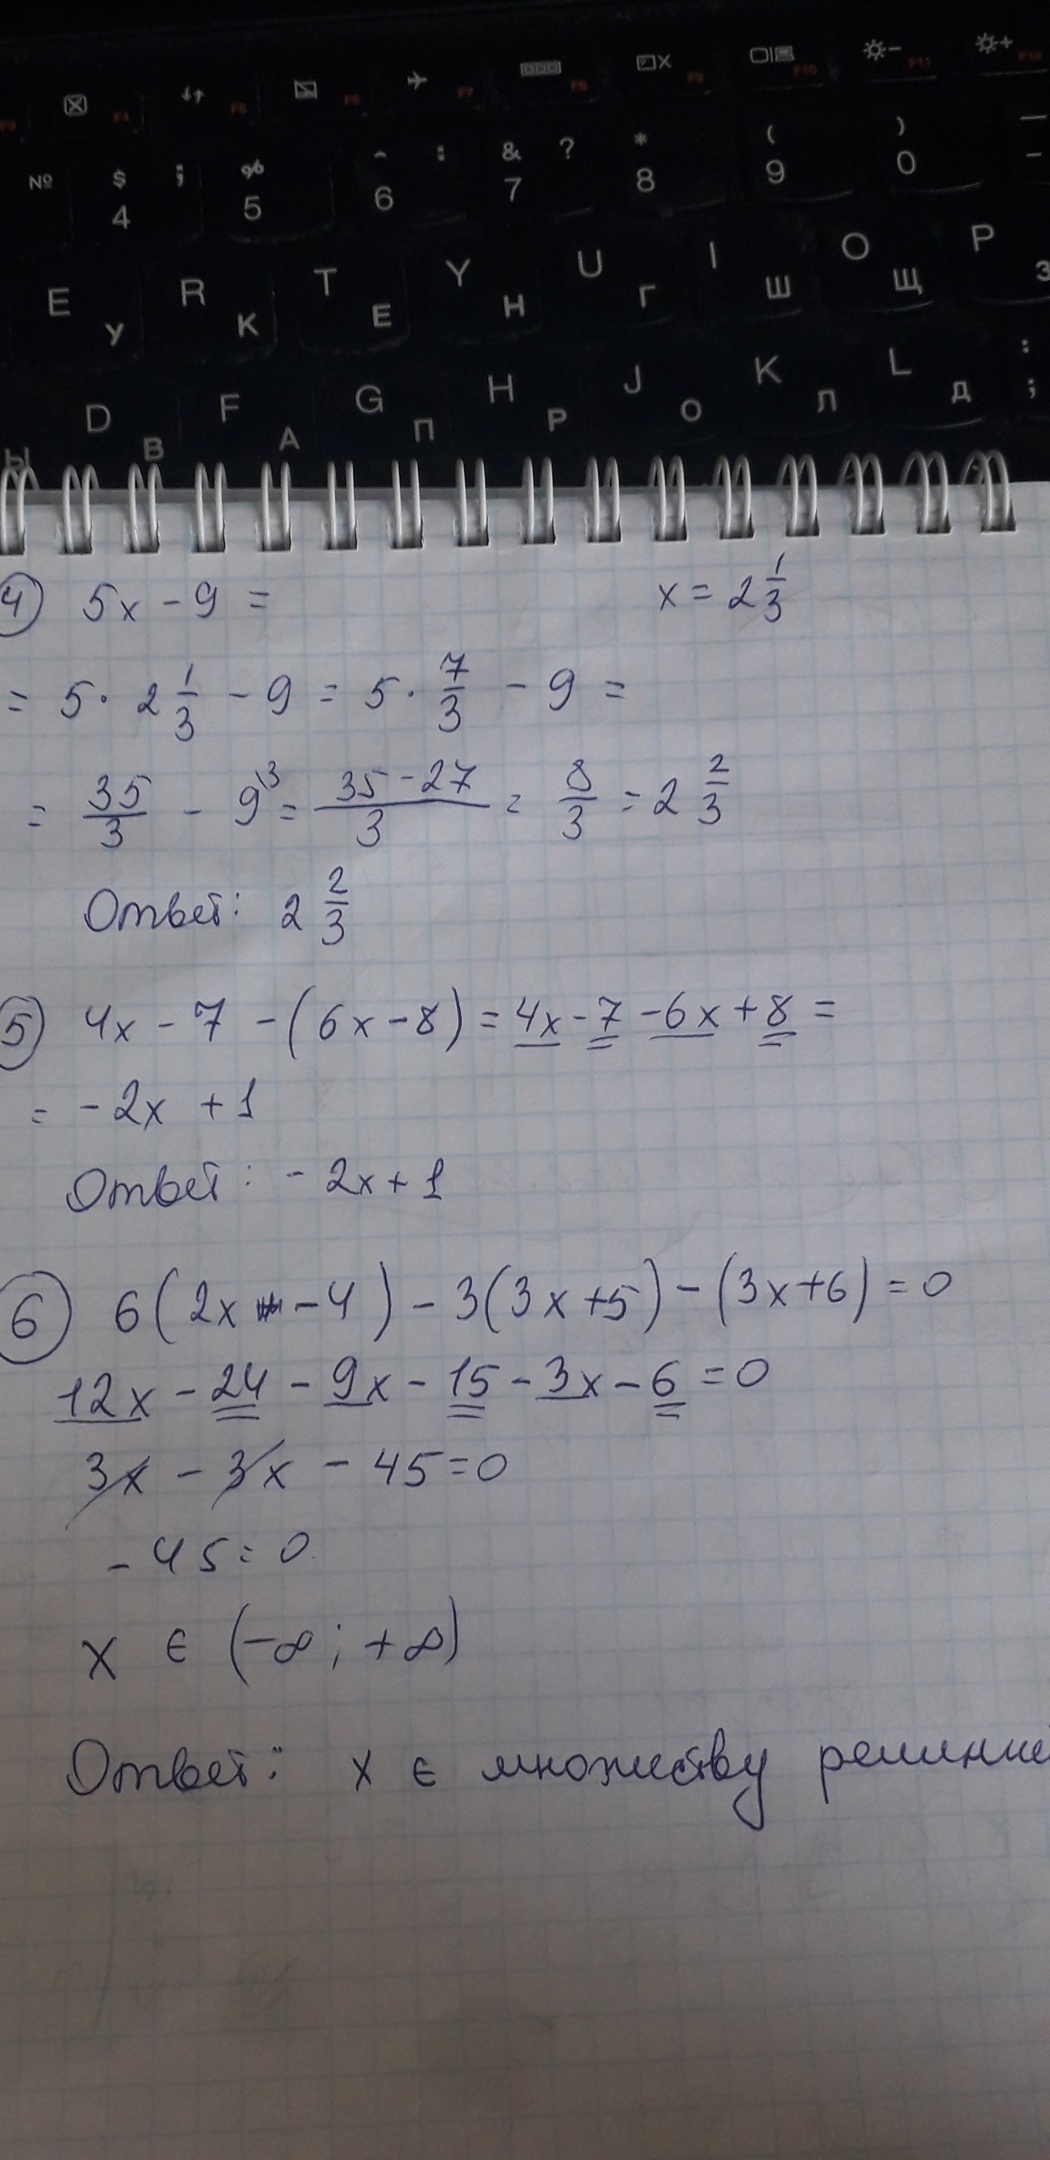 F3 F4 F5 F6 F7 F8 F9 F10 F11 F12
№ $ ; 4 % 5 ^ : 6 & ? 7 * 8 ( 9 ) 0 — -
E У R К T Е Y Н U Г I Ш O Щ P З
Ы D В F А G П H Р J О K Л L Д : ;
4) 5x - 9 = x = 2 1/3
= 5 · 2 1/3 - 9 = 5 · 7/3 - 9 =
= 35/3 - 9\3 = (35 - 27)/3 = 8/3 = 2 2/3
Ответ: 2 2/3
5) 4x - 7 - (6x - 8) = 4x - 7 - 6x + 8 =
= - 2x + 1
Ответ: - 2x + 1
6) 6(2x - 4) - 3(3x + 5) - (3x + 6) = 0
12x - 24 - 9x - 15 - 3x - 6 = 0
3x - 3x - 45 = 0
- 45 = 0
x ∈ (-∞; +∞)
Ответ: x ∈ множеству